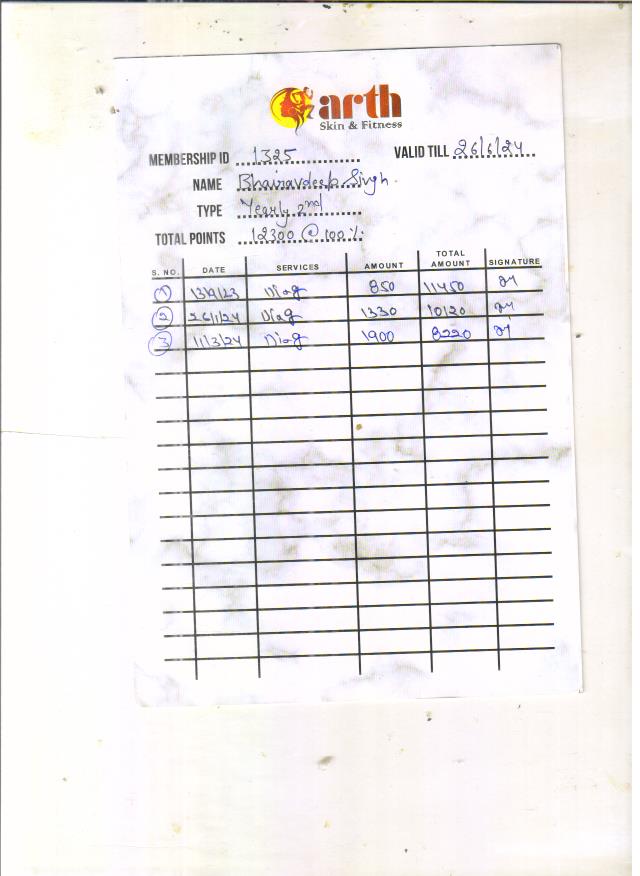 arth
Skin & Fitness
MEMBERSHIP ID 1325 VALID TILL 26/6/24
NAME Bhairavdeep Singh.
TYPE Yearly 2nd
TOTAL POINTS 12300 @ 100%
S. NO. DATE SERVICES AMOUNT TOTAL AMOUNT SIGNATURE
1 13/9/23 Diag 850 11450
2 26/1/24 Diag 1330 10120
3 11/3/24 Diag 1900 8220